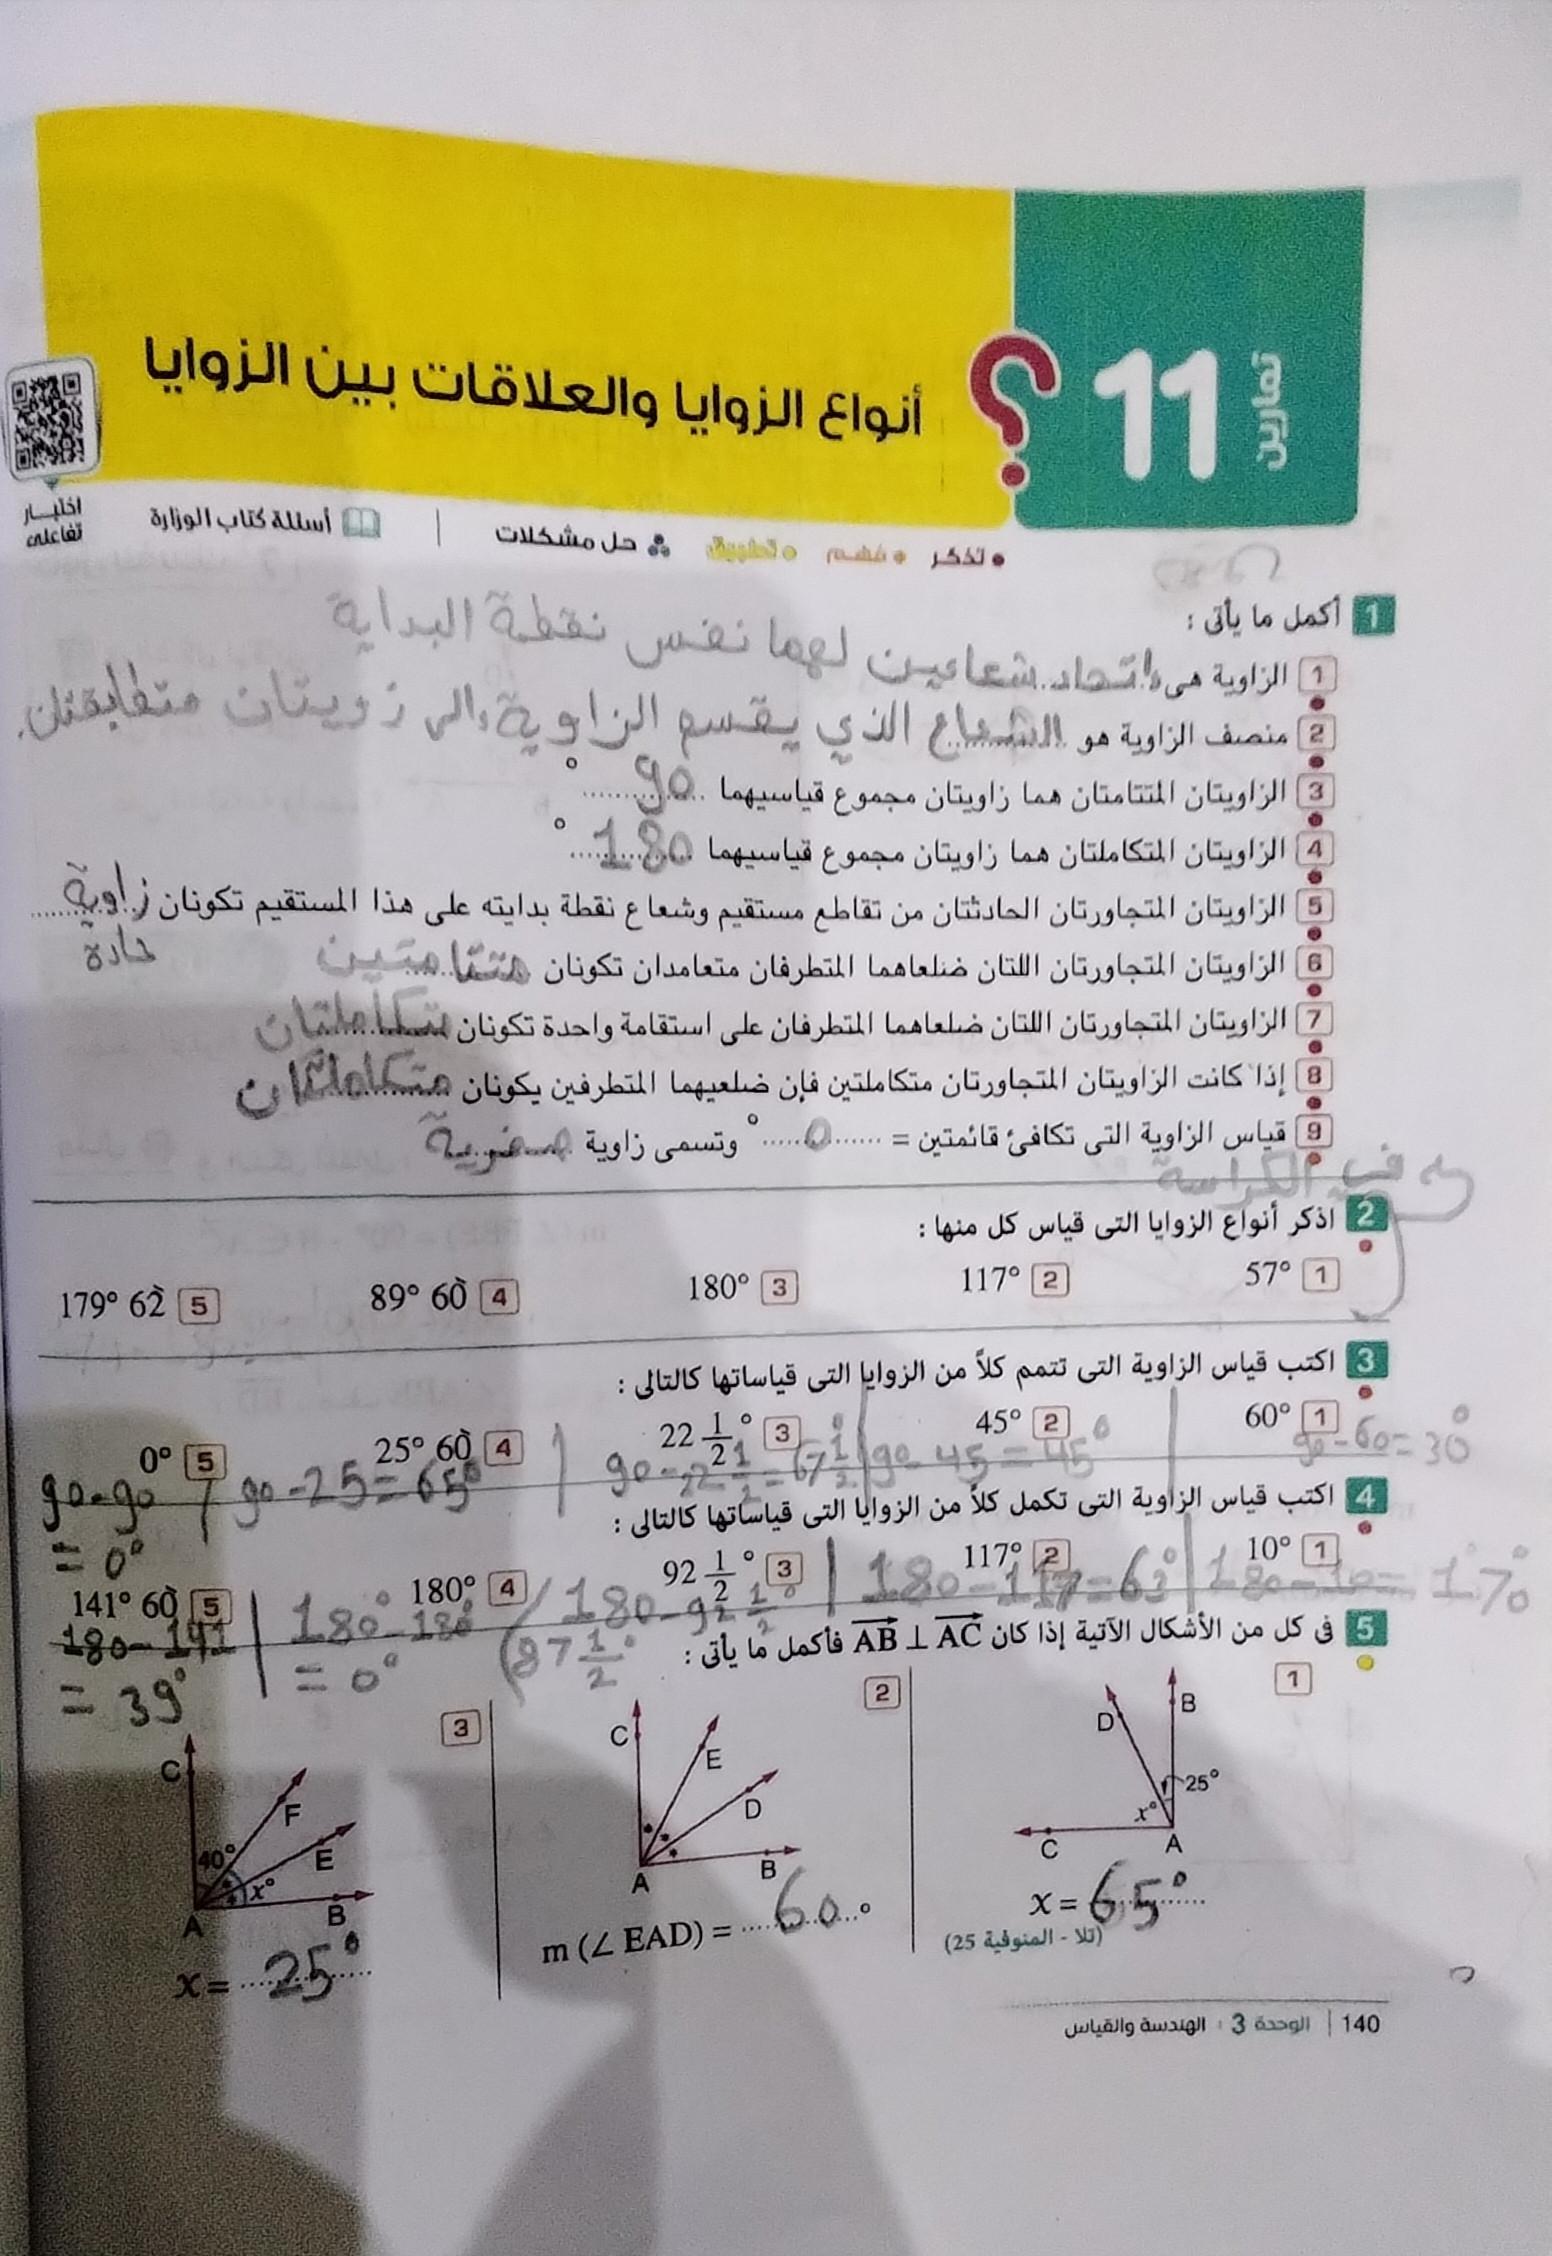 تمارين 11
أنواع الزوايا والعلاقات بين الزوايا
اختبار تفاعلى
• تذكر • فهم • تطبيق حل مشكلات | أسئلة كتاب الوزارة
1 أكمل ما يأتى :
1 الزاوية هى اتحاد شعاعين لهما نفس نقطة البداية
2 منصف الزاوية هو الشعاع الذي يقسم الزاوية الى زويتان متطابقتان.
3 الزاويتان المتتامتان هما زاويتان مجموع قياسيهما 90 °
4 الزاويتان المتكاملتان هما زاويتان مجموع قياسيهما 180 °
5 الزاويتان المتجاورتان الحادثتان من تقاطع مستقيم وشعاع نقطة بدايته على هذا المستقيم تكونان زاوية
حادة
6 الزاويتان المتجاورتان اللتان ضلعاهما المتطرفان متعامدان تكونان متتامتين
7 الزاويتان المتجاورتان اللتان ضلعاهما المتطرفان على استقامة واحدة تكونان متكاملتان
8 إذا كانت الزاويتان المتجاورتان متكاملتين فإن ضلعيهما المتطرفين يكونان متكاملتان
9 قياس الزاوية التى تكافئ قائمتين = 0 ° وتسمى زاوية صفرية
في الكراسة
2 اذكر أنواع الزوايا التى قياس كل منها :
1 57° 2 117° 3 180° 4 89° 60` 5 179° 62`
3 اكتب قياس الزاوية التى تتمم كلاً من الزوايا التى قياساتها كالتالى :
1 60° 2 45° 3 22 1/2 ° 4 25° 60` 5 0°
90-60=30° | 90-45=45° | 90-22 1/2=67 1/2° | 90-25=65° | 90-90
=0°
4 اكتب قياس الزاوية التى تكمل كلاً من الزوايا التى قياساتها كالتالى :
1 10° 2 117° 3 92 1/2 ° 4 180° 5 141° 60`
180-10=170° | 180-117=63° | 180-92 1/2° | 180°-180° | 180-141
87 1/2° | =0° | =39°
5 فى كل من الأشكال الآتية إذا كان AB ⊥ AC فأكمل ما يأتى :
1
B
D
25°
x°
C
A
x = 65°
(تلا - المنوفية 25)
2
C
E
D
B
A
m (∠ EAD) = 60 °
3
C
F
40°
E
x°
A
B
x = 25°
140 | الوحدة 3 : الهندسة والقياس